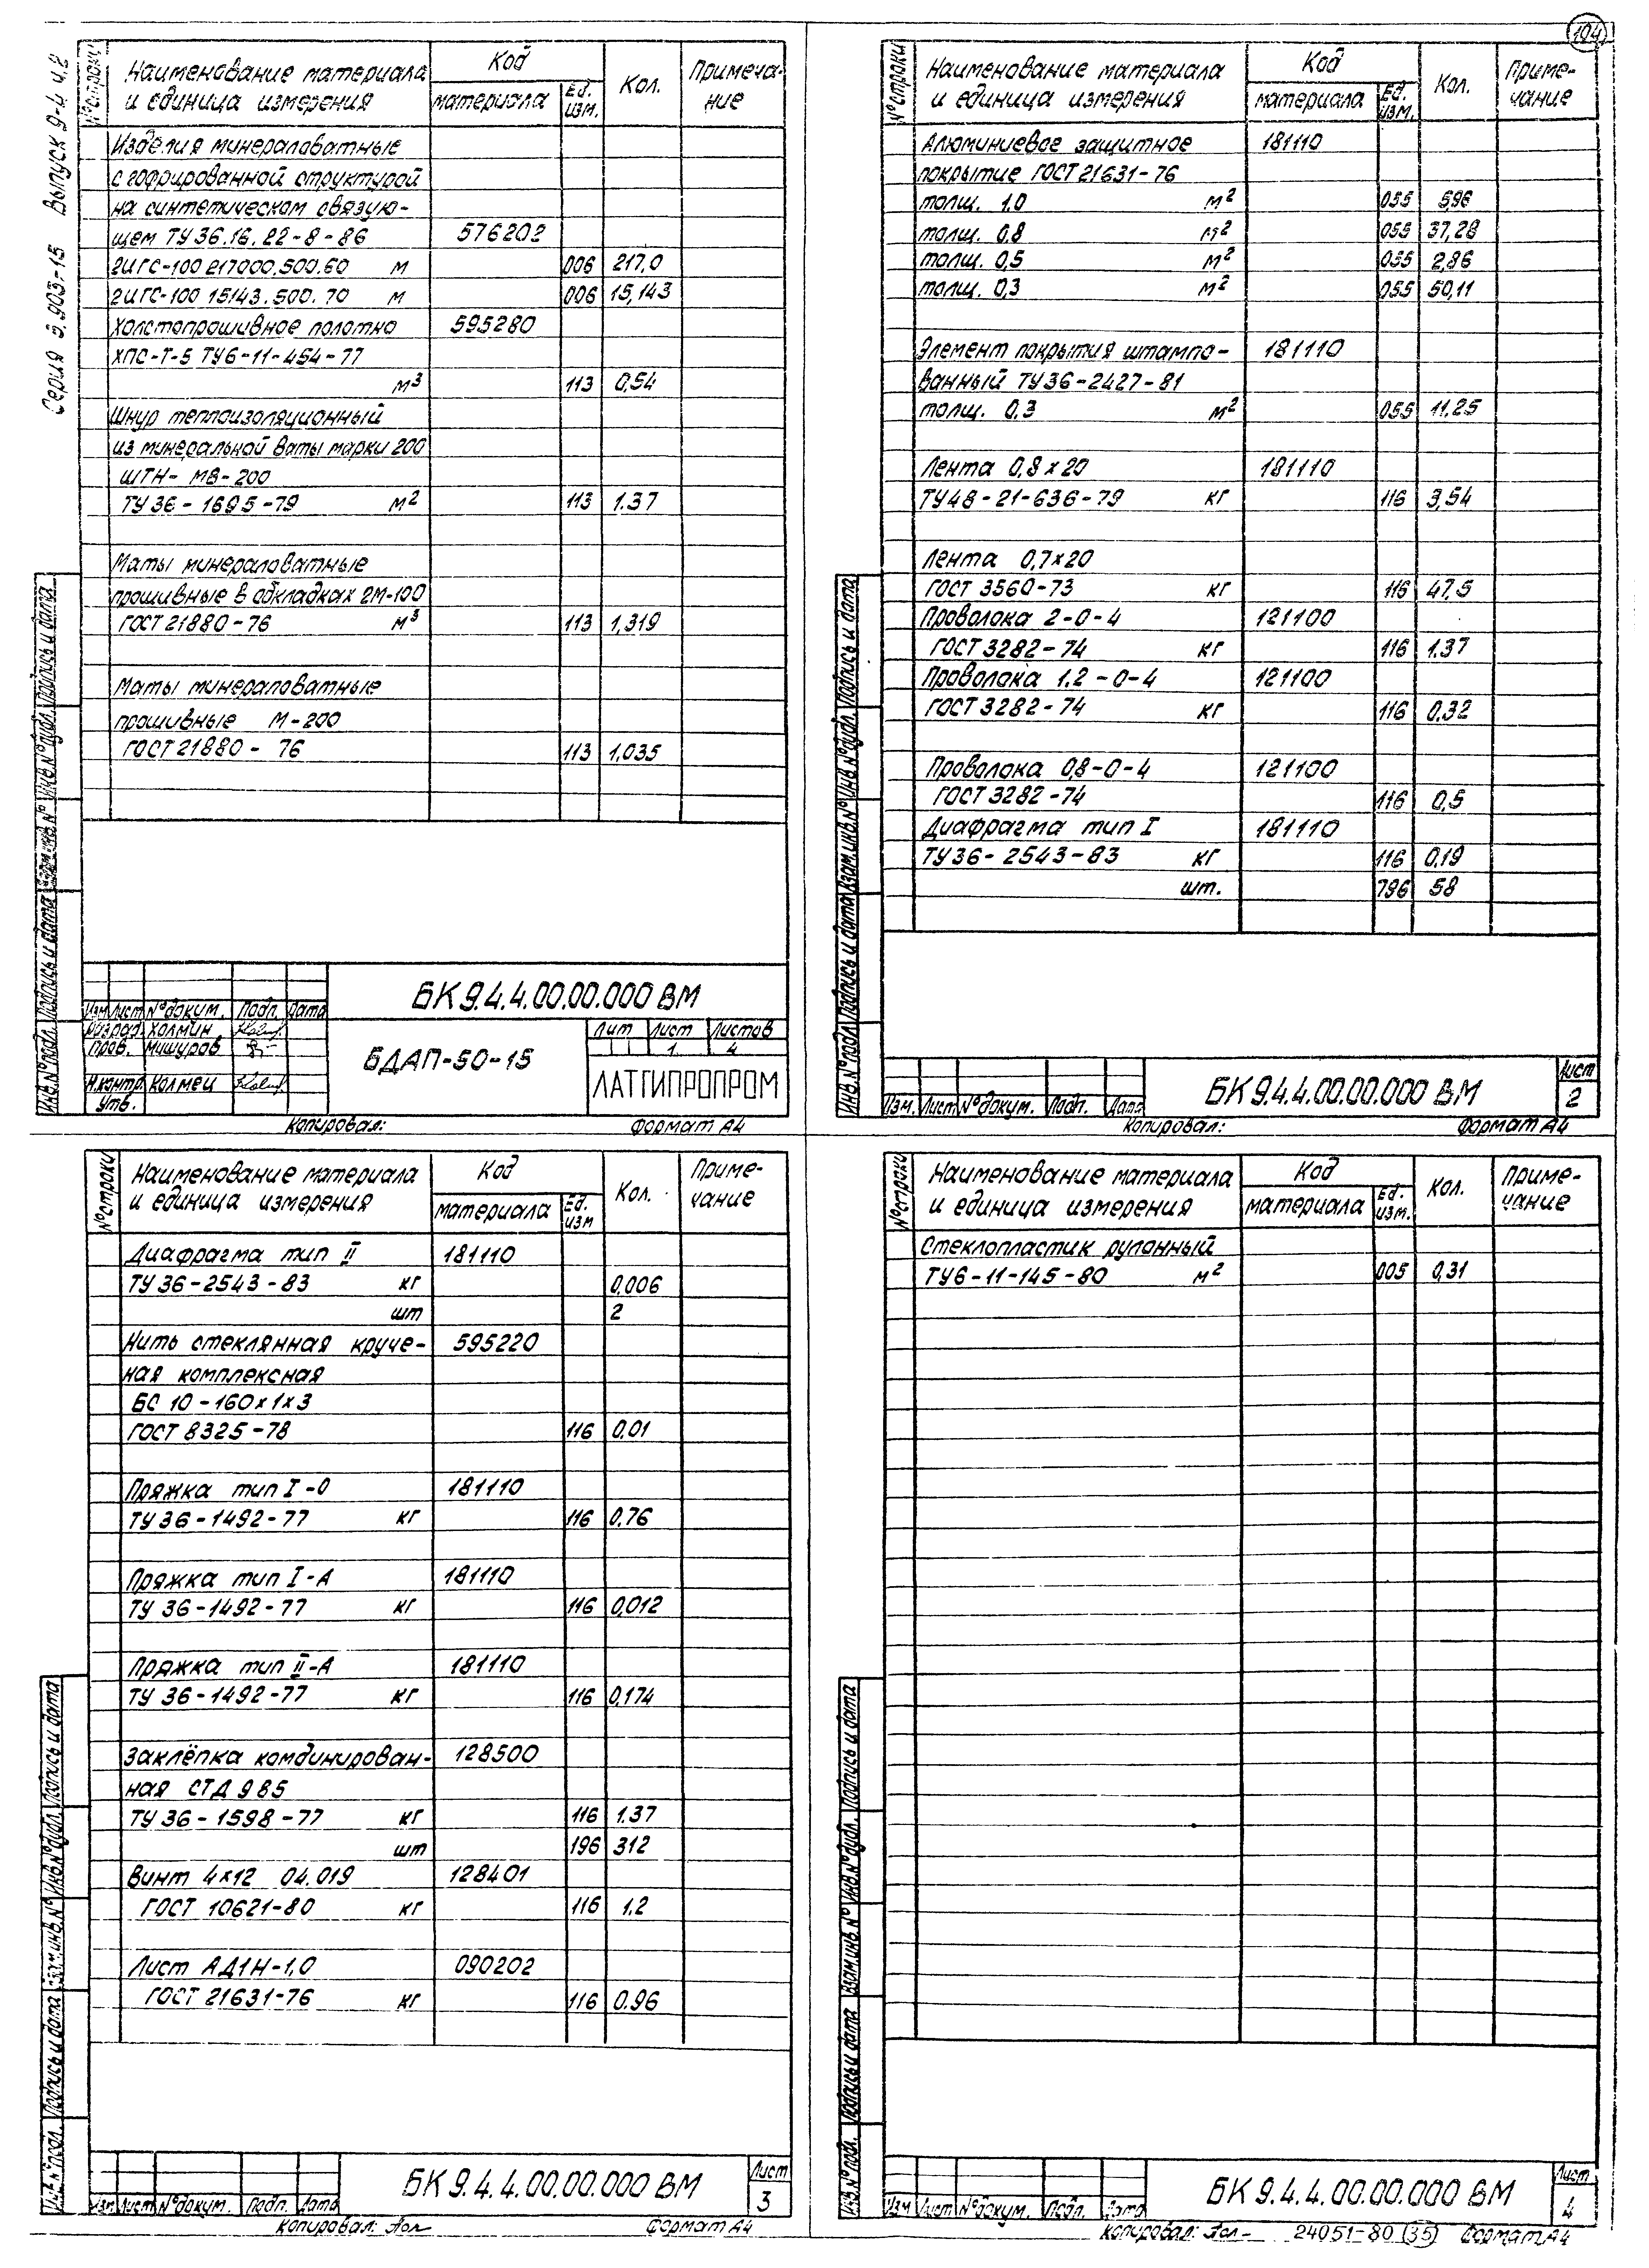 Серия 5.903-15 Выпуск 9-4 ч.2
124
№ строки Наименование материала и единица измерения Код материала Ед. изм. Кол. Примечание
Изделия минераловатные
с гофрированной структурой
на синтетическом связую-
щем ТУ 36.16.22-8-86 576202
2ИГС-100 217000.500.60 м 006 217,0
2ИГС-100 15143.500.70 м 006 15,143
Холстопрошивное полотно 595280
ХПС-Т-5 ТУ6-11-454-77
м³ 113 0,54
Шнур теплоизоляционный
из минеральной ваты марки 200
ШТН-МВ-200
ТУ 36-1695-79 м² 113 1.37
Маты минераловатные
прошивные в обкладках 2М-100
ГОСТ 21880-76 м³ 113 1,319
Маты минераловатные
прошивные М-200
ГОСТ 21880-76 113 1,035
Инв. № подл. Подпись и дата Взам. инв. № Инв. № дубл. Подпись и дата
БК 9.4.4.00.00.000 ВМ
Изм Лист № докум. Подп. Дата
Разраб. Холмин
Пров. Мишуров
Н.контр. Колмец
Утв.
БДАП-50-15
Лит Лист Листов
1 4
ЛАТГИПРОПРОМ
Копировал: Формат А4
№ строки Наименование материала и единица измерения Код материала Ед. изм. Кол. Приме-чание
Алюминиевое защитное 181110
покрытие ГОСТ 21631-76
толщ. 1.0 м² 055 5,96
толщ. 0,8 м² 055 37,28
толщ. 0,5 м² 055 2,86
толщ. 0,3 м² 055 50,11
Элемент покрытия штампо- 181110
ванный ТУ 36-2427-81
толщ. 0,3 м² 055 11,25
Лента 0,8х20 181110
ТУ48-21-636-79 кг 116 3,54
Лента 0,7х20
ГОСТ 3560-73 кг 116 47,5
Проволока 2-0-4 121100
ГОСТ 3282-74 кг 116 1.37
Проволока 1,2-0-4 121100
ГОСТ 3282-74 кг 116 0,32
Проволока 0,8-0-4 121100
ГОСТ 3282-74 116 0,5
Диафрагма тип I 181110
ТУ36-2543-83 кг 116 0,19
шт. 796 58
Инв. № подл. Подпись и дата Взам. инв. № Инв. № дубл. Подпись и дата
Изм. Лист № докум. Подп. Дата
БК 9.4.4.00.00.000 ВМ
Лист
2
Копировал: Формат А4
№ строки Наименование материала и единица измерения Код материала Ед. изм Кол. Приме-чание
Диафрагма тип II 181110
ТУ 36-2543-83 кг 0,006
шт 2
Нить стеклянная круче- 595220
ная комплексная
БС 10-160х1х3
ГОСТ 8325-78 116 0,01
Пряжка тип I-0 181110
ТУ 36-1492-77 кг 116 0,76
Пряжка тип I-А 181110
ТУ 36-1492-77 кг 116 0,012
Пряжка тип II-А 181110
ТУ 36-1492-77 кг 116 0,174
Заклёпка комдинирован- 128500
ная СТД 985
ТУ 36-1598-77 кг 116 1.37
шт 196 312
Винт 4х12 04.019 128401
ГОСТ 10621-80 кг 116 1.2
Лист АД1Н-1,0 090202
ГОСТ 21631-76 кг 116 0.96
Инв. № подл. Подпись и дата Взам. инв. № Инв. № дубл. Подпись и дата
Изм Лист № докум. Подп. Дата
БК 9.4.4.00.00.000 ВМ
Лист
3
Копировал: Формат А4
№ строки Наименование материала и единица измерения Код материала Ед. изм. Кол. Приме-чание
Стеклопластик рулонный
ТУ6-11-145-80 м² 005 0,31
Инв. № подл. Подпись и дата Взам. инв. № Инв. № дубл. Подпись и дата
Изм Лист № докум. Подп. Дата
БК 9.4.4.00.00.000 ВМ
Лист
4
Копировал: 24051-80 (35) Формат А4